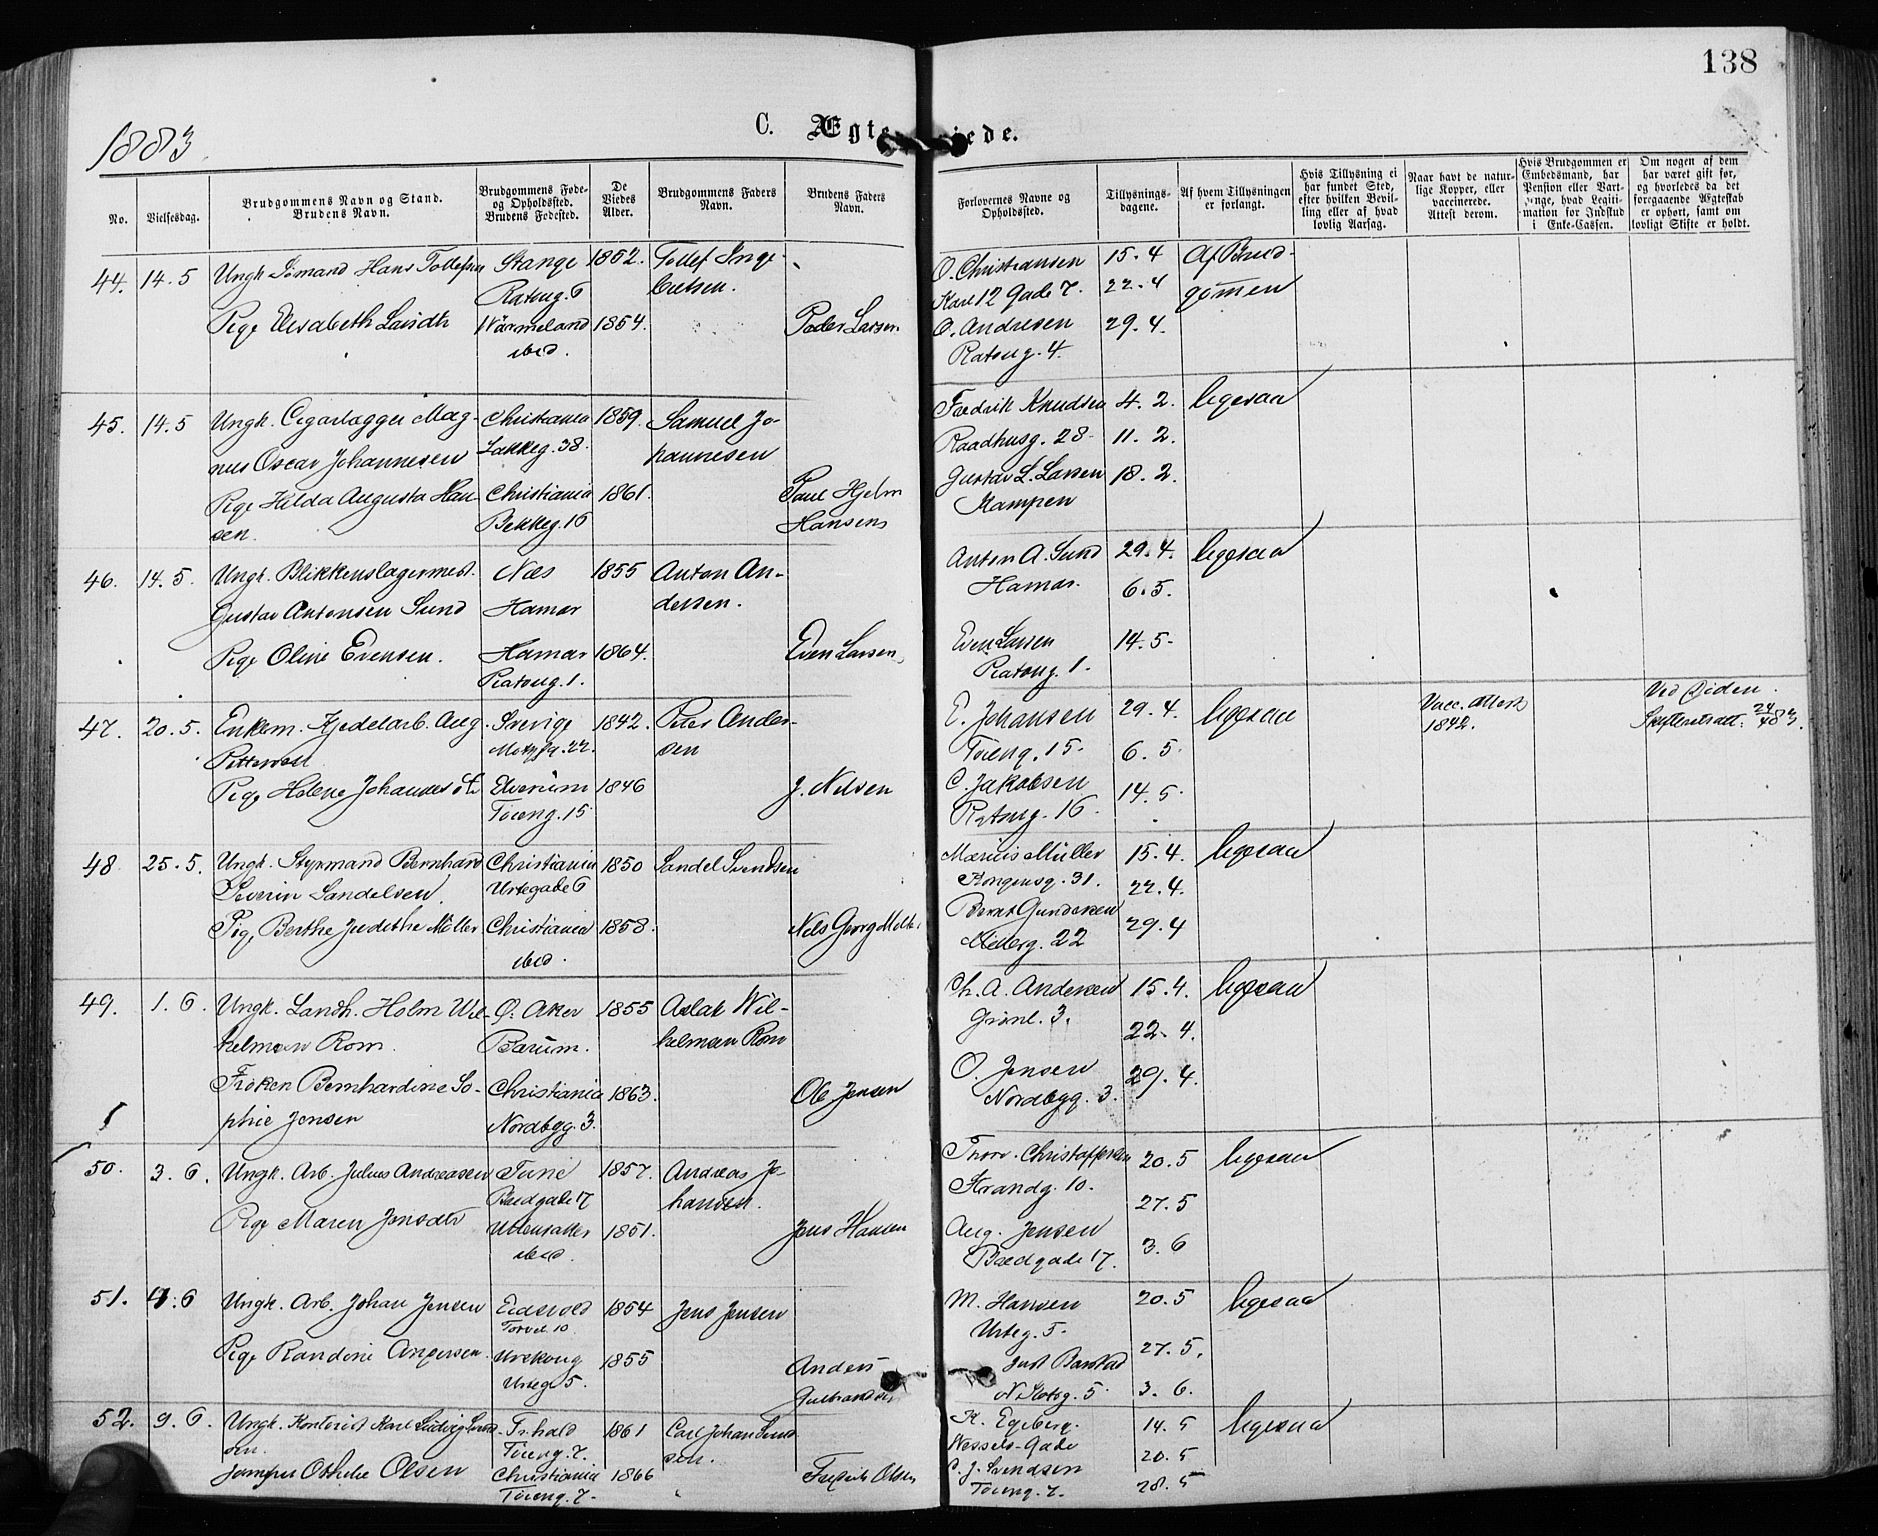 138
1883
C. Ægte iede.
No.
Vielsesdag.
Brudgommens Navn og Stand.
Brudens Navn.
Brudgommens Føde-
og Opholdssted.
Brudens Fødested.
De
Viedes
Alder.
Brudgommens Faders
Navn.
Brudens Faders
Navn.
Forlovernes Navne og
Opholdssted.
Tillysnings-
dagene.
Af hvem Tillysningen
er forlangt.
Hvis Tillysning ei
har fundet Sted,
efter hvilken Bevil-
ling eller af hvad
lovlig Aarsag.
Naar havt de natur-
lige Kopper, eller
vaccinerede.
Attest derom.
Hvis Brudgommen er
Embedsmand, har
Pension eller Vart-
penge, hvad Legiti-
mation for Indskud
i Enke-Cassen.
Om nogen af dem
har været gift før,
og hvorledes da det
foregaaende Ægteskab
er ophørt, samt om
lovligt Skifte er holdt.
44. 14.5 Ungk. Sømand Hans Tollefsen Stange 1852. Tollef Inge- O. Christiansen 15.4 Af Brud-
Ratoug. 6 bretsen. Karl 12 Gade 7. 22.4 gommen
Pige Elisabeth Larsdtr Värmeland 1854. Peder Larsen O. Andresen 29.4.
ibid. Ratoug. 4.
45. 14.5 Ungk. Cigarlægger Mag- Christiania 1859. Samuel Jo- Fredrik Knudsen 4.2. ligesaa
nus Oscar Johannesen Lakkeg. 38. hannesen Raadhusg. 28 11.2.
Pige Hilda Augusta Han- Christiania 1861. Paul Hjelm Gustav L. Larsen 18.2.
sen. Bekkeg. 16 Hansen Kampen
46. 14.5. Ungk. Blikkenslagermest. Næs 1855 Anton An- Anton A. Sund 29.4. ligesaa
Gustav Antonsen Sund Hamar dersen. Hamar. 6.5.
Pige Oline Evensen. Hamar 1864. Even Larsen Even Larsen 14.5.
Ratoug. 1. Ratoug. 1.
47. 20.5. Enkem. Kjedelarb. Aug. Sverige 1842. Peter Ander- E. Johansen 29.4. ligesaa Vacc. Attest Ved Døden.
Pettersen sen Tøieng. 15. 6.5. 1842. Skifteretsatt. 24/4 83.
Pige Helene Johannesdtr Elverum 1846 J. Nilsen C. Jakobsen 14.5.
Tøieng. 15 Ratoug. 16.
48 25.5. Ungk. Styrmand Bernhard Christiania 1850 Sandel Svendsen Marius Müller 15.4. ligesaa
Severin Sandelsen. Urtegade 6 Kongensg. 31. 22.4.
Pige Berthe Judithe Möller Christiania 1858. Nils Georg Bernt Gundersen 29.4
ibid. 22
49. 1.6. Ungk. Landh. Holm Wil- Ø. Aker 1855 Aslak Wil- Ch. A. Andersen 15.4. ligesaa
helmsen Rom. Bærum. helmsen Rom Grønl. 3. 22.4.
Frøken Bernhardine So- Christiania 1863. Ole Jensen O. Jensen 29.4.
phie Jensen Nordbyg. 3. Nordbyg. 3.
50. 3.6. Ungk. Arb. Julius Andreassen Tune 1857. Andreas Jo- Thorv. Christoffersen 20.5 ligesaa
Bredgade 17 hansen. Strandg. 10. 27.5
Pige Maren Jensdtr Ullensaker 1851. Jens Hansen Aug. Jensen 3.6
ibid. Bredgade 17.
51. 4.6 Ungk. Arb. Johan Jensen Eidsvold 1854 Jens Jensen M. Hansen 20.5 ligesaa
Torvet. 10 Urteg. 5.
Pige Randine Andersen. Urskoug 1855 Anders Just Barstad 27.5.
Urteg. 5. Gulbrandsen N. Slotsg. 5. 3.6.
52. 9.6. Ungk. Kontorist Karl Ludvig Svend- Fr.hald 1861 Carl Johan Svend- K. Egeberg. 14.5 ligesaa
sen. Tøieng. 7. sen. Wessels-Gade 20.5
Jomfru Othilie Olsen Christiania 1866 Fredrik Olsen C. J. Svendsen
Tøieng. 7. Tøieng. 7. 28.5